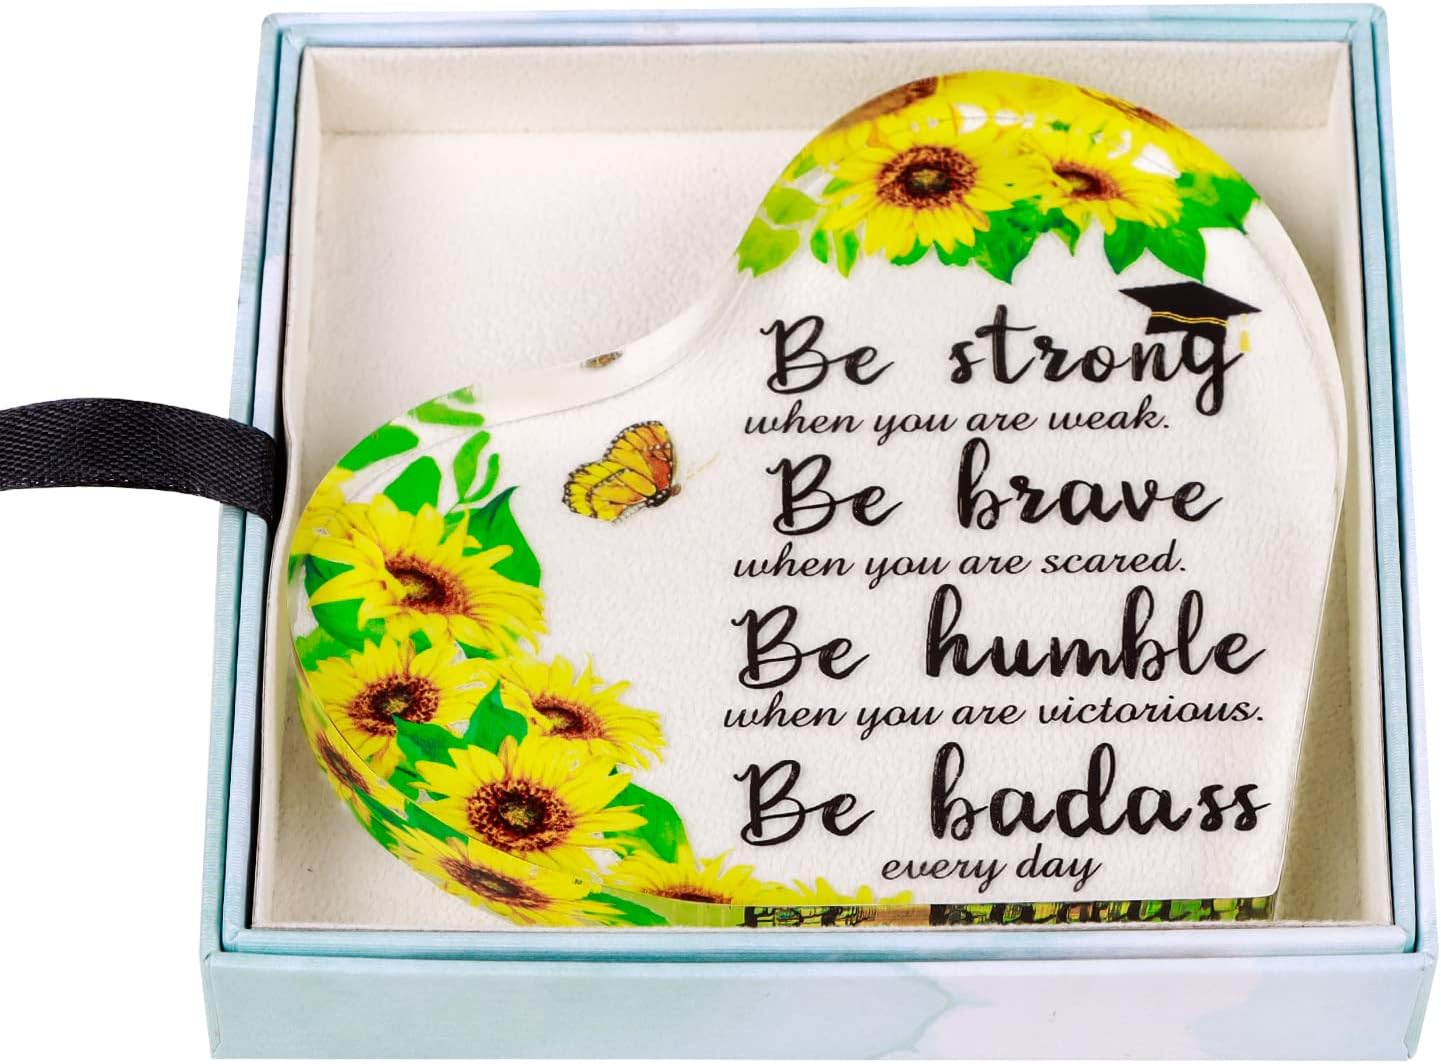 Be strong
when you are weak.
Be brave
when you are scared.
Be humble
when you are victorious.
Be badass
every day